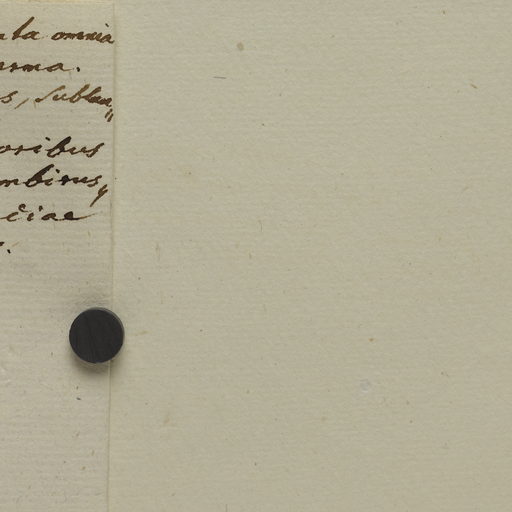 ta omnia
rma.
s, sublan„
oribus
mbirus,
ciae